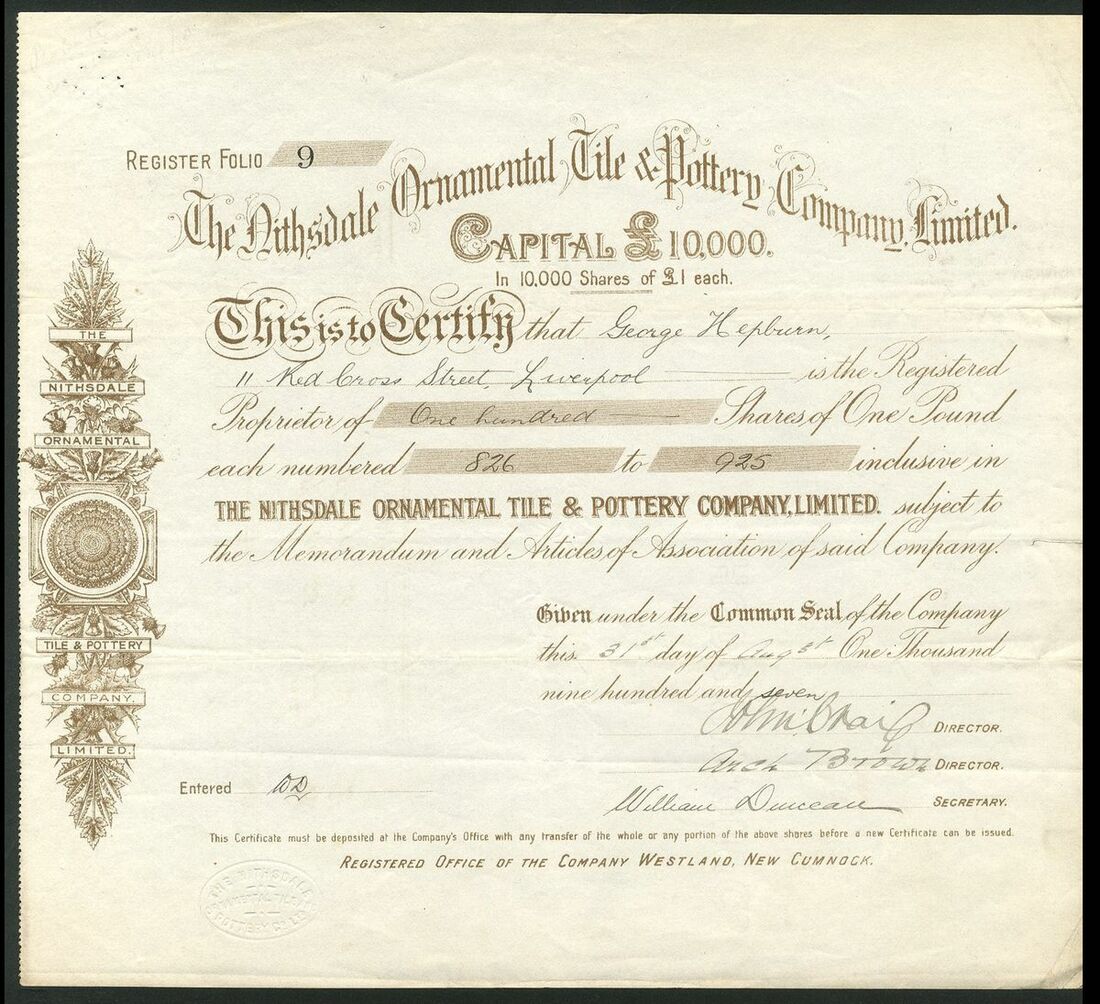 REGISTER FOLIO 9
The Nithsdale Ornamental Tile & Pottery Company, Limited.
CAPITAL £10,000.
In 10,000 Shares of £1 each.
This is to Certify that George Hepburn,
11 Red Cross Street, Liverpool is the Registered
Proprietor of One hundred Shares of One Pound
each numbered 826 to 925 inclusive in
THE NITHSDALE ORNAMENTAL TILE & POTTERY COMPANY, LIMITED. subject to
the Memorandum and Articles of Association of said Company.
Given under the Common Seal of the Company
this 31st day of Augst One Thousand
nine hundred and seven
John Craig DIRECTOR.
Arch Brown DIRECTOR.
Entered WD
William Duncan SECRETARY.
This Certificate must be deposited at the Company's Office with any transfer of the whole or any portion of the above shares before a new Certificate can be issued.
REGISTERED OFFICE OF THE COMPANY WESTLAND, NEW CUMNOCK.
THE
NITHSDALE
ORNAMENTAL
TILE & POTTERY
COMPANY.
LIMITED.
THE NITHSDALE
ORNAMENTAL TILE &
POTTERY CO LTD